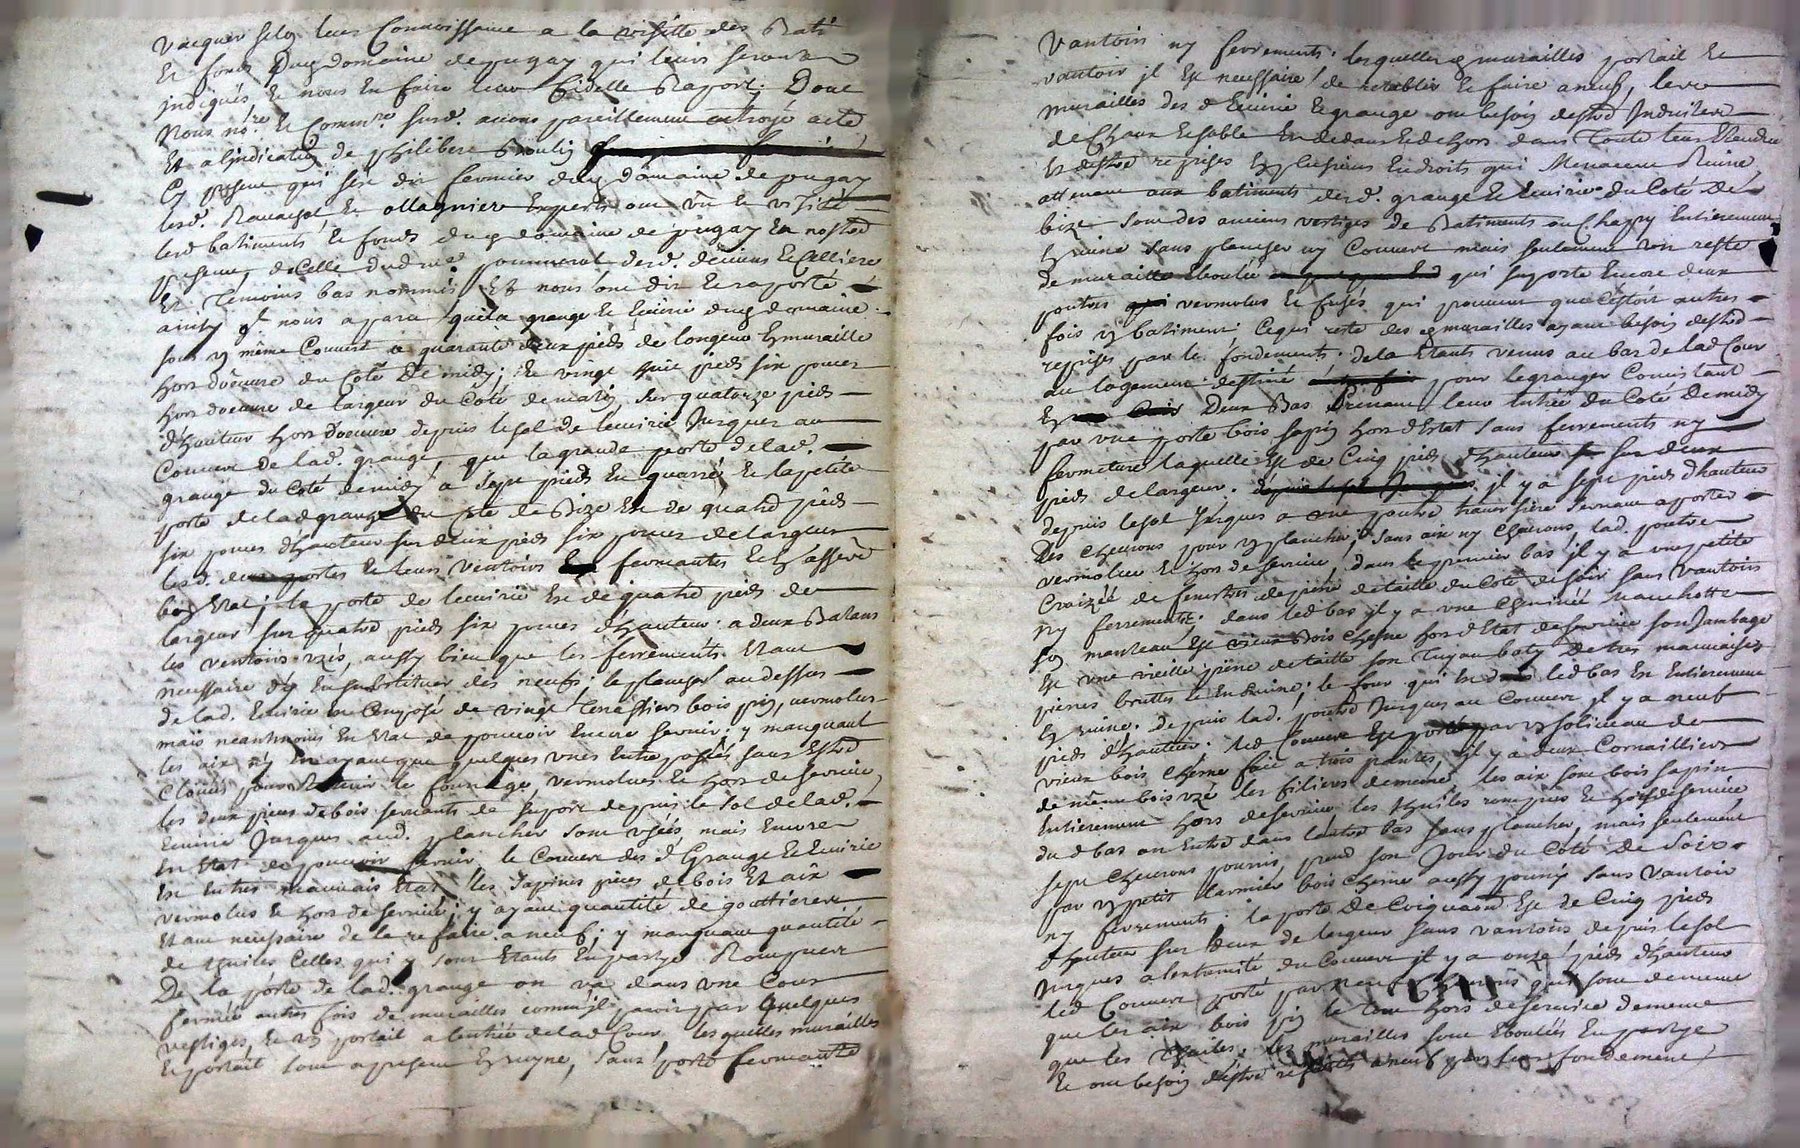 vacquer selon leur Connoissance a la visitte des Bati
et fonds dud domaine de pugay qui leurs seront
indiqués et nous en faire leur fidelle Raport. Dont
Nous no.re et Comm.re susd. avons pareillement octroyé acte
Et a lindication de philibert Moulin
Cy present qui sest dit fermier dud domaine de pugay
lesd. et ollagnier Experts ont vû et visité
lesd batiments et fonds dud domaine de pugay En nostre
presence, de Celle dud desd. et Celliere
Et Temoins bas nommés, Et nous ont dit et raporté
ainsy qu'il nous a paru que la grange et Ecuirie dud domaine
sous un même Couvert a quarante deux pieds de longeur En muraille
hors doeuvre du Coté de midy; et vingt huit pieds six pouces
hors doeuvre de largeur du Coté de matin, sur quatorze pieds
d'hauteur hors doeuvre depuis le sol de lecuirie Jusques au
Couvert de lad. grange, que la grande porte de lad.
grange du Coté de midy a sept pieds En quarré et la petite
porte de lad grange du Coté de Bize Est de quatre pieds
six pouces d'hauteur sur deux pieds six pouces de largeur
lesd. deux portes et leurs ventoirs fermantes et En assez
bon Etat; la porte de lecuirie Est de quatre pieds de
largeur sur quatre pieds six pouces d'hauteur. a deux Batans
les ventoirs uzés, aussy bien que les ferrements Etant
necessaire d'y En substituer des neufs; le plancher au dessus
de lad. Ecuirie est Composé de vingt bois pin, vermolus
mais neantmoins En Etat de pouvoir Encore servir; y manquant
les aix n'y En ayant que quelques unes Entreposés, sans Estre
Cloués pour Retenir le fourage, vermolues et hors de service,
les deux pieces de bois servants de suport depuis le sol de lad.
Ecuirie Jusques aud. plancher sont usées mais Encore
En Etat de pouvoir servir, le Couvert des d. Grange et Ecuirie
Est En tres mauvais Etat, les sapines pieces de bois Et aix
vermolus et hors de service, y ayant quantité de gouttieres
Etant necessaire de le refaire a neuf; y manquant quantité
de thuiles Celles qui y sont Etants En partye Rompues
De la porte de lad. grange on va dans une Cour
fermée autres fois de murailles comme il paroit par Quelques
vestiges, et un portail a lentrée de lad Cour lesquelles murailles
et portail sont a present En ruyne, sans porte fermante
vantoirs ny ferrements. lesquelles murailles portail et
vantoir il Est necessaire de retablir et faire a neuf, les
murailles des d Ecuirie et grange ont besoin destre Induites
de Chaux et sable En dedans et dehors dans Toute leur Etendue
et destre reprises En plusieurs Endroits qui Menacent Ruine
attenant aux batiments desd. grange et Ecuirie du Coté de
bize sont des anciens vestiges de Batiments ou Chapy Entierement
En ruine sans plancher ny Couvert mais seulement un reste
de muraille Eboulée qui suporte Encore deux
poutres vermolus et fusés qui prouvent que C'estoit autres
fois un batiment. Ce qui reste des murailles ayant besoin destre
reprises par les fondements. de la Etants venus au bas de lad Cour
au logement destiné pour le granger Consistant
En Deux Bas Prenant leur Entrée du Coté de midy
par une porte bois sapin hors d'Estat sans ferrements ny
fermeture laquelle Est de Cinq pieds d'hauteur sur deux
pieds de largeur. il y a sept pieds d'hauteur
depuis le sol Jusques a une poutre traversiere servant a porter
Des Chevrons pour un plancher, sans aix ny Chevrons, lad. poutre
vermolue et hors de service, dans le premier bas il y a une petite
Croizée de fenestre de pierre de taille du Coté de soir sans vantoirs
ny ferrements; dans led bas il y a une Cheminée
son manteau Est vieux Bois Chesne hors d'Etat de service son Jambage
Est une vieille pierre de taille son Tuyau baty de tres mauvaises
pierres bruttes et En Ruine; le four qui Est d led bas En Entierement
En ruine. Depuis lad. poutre Jusques au Couvert il y a neuf
pieds d'hauteur. led Couvert Est porté par un soliveau de
vieux bois Chesne fait a trois pentes, il y a deux Cornalliers
de même bois uzé les filieres de meme, les aix sont bois sapin
Entierement hors de service les thuiles rompues et hors de service,
du d bas on Entre dans lautre bas sans plancher, mais seulement
sept Chevrons pourris, prend son Jour du Coté de Soir
par un petit larmier bois Chesne aussy pourry sans vantoir
ny ferrements: la porte de Est de Cinq pieds
d'hauteur sur deux de largeur sans vantoirs depuis le sol
Jusques a lextremité du Couvert il y a onze pieds d'hauteur
led Couvert porté par Chevrons qui sont de meme
que les aix bois pin le tout hors de service de meme
que les thuiles, les murailles sont Eboulées En partye
et ont besoin d'estre refaites a neuf par leur fondement